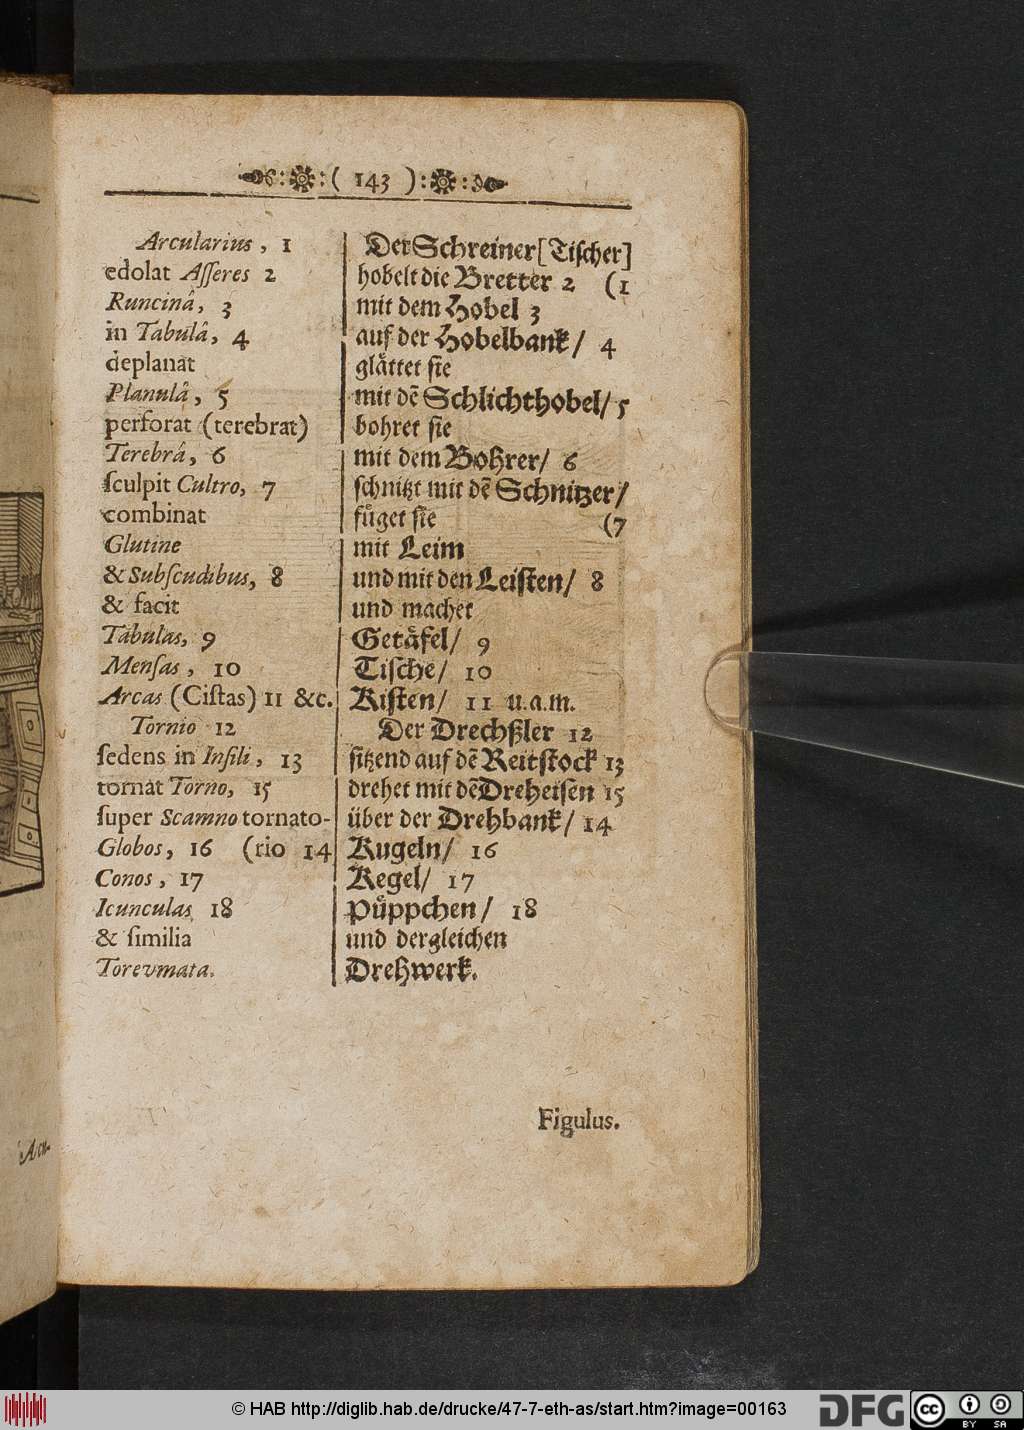 ( 143 )
Arcularius, 1
edolat Aſſeres 2
Runcinâ, 3
in Tabulâ, 4
deplanat
Planulâ, 5
perforat (terebrat)
Terebrâ, 6
ſculpit Cultro, 7
combinat
Glutine
& Subſcudibus, 8
& facit
Tabulas, 9
Menſas, 10
Arcas (Ciſtas) 11 &c.
Tornio 12
ſedens in Inſili, 13
tornat Torno, 15
ſuper Scamno tornato-
Globos, 16 (rio 14
Conos, 17
Icunculas 18
& ſimilia
Torevmata.
Der Schreiner [Tiſcher]
hobelt die Bretter 2 (1
mit dem Hobel 3
auf der Hobelbank/ 4
glaͤttet ſie
mit dẽ Schlichthobel/ 5
bohret ſie
mit dem Bohrer/ 6
ſchnitzt mit dẽ Schnitzer/
fuͤget ſie (7
mit Leim
und mit den Leiſten/ 8
und machet
Getaͤfel/ 9
Tiſche/ 10
Kiſten/ 11 u.a.m.
Der Drechßler 12
ſitzend auf dẽ Reitſtock 13
drehet mit dẽ Dreheiſen 15
über der Drehbank/ 14
Kugeln/ 16
Kegel/ 17
Puͤppchen/ 18
und dergleichen
Drehwerk.
Figulus.
© HAB http://diglib.hab.de/drucke/47-7-eth-as/start.htm?image=00163
DFG
cc
BY SA